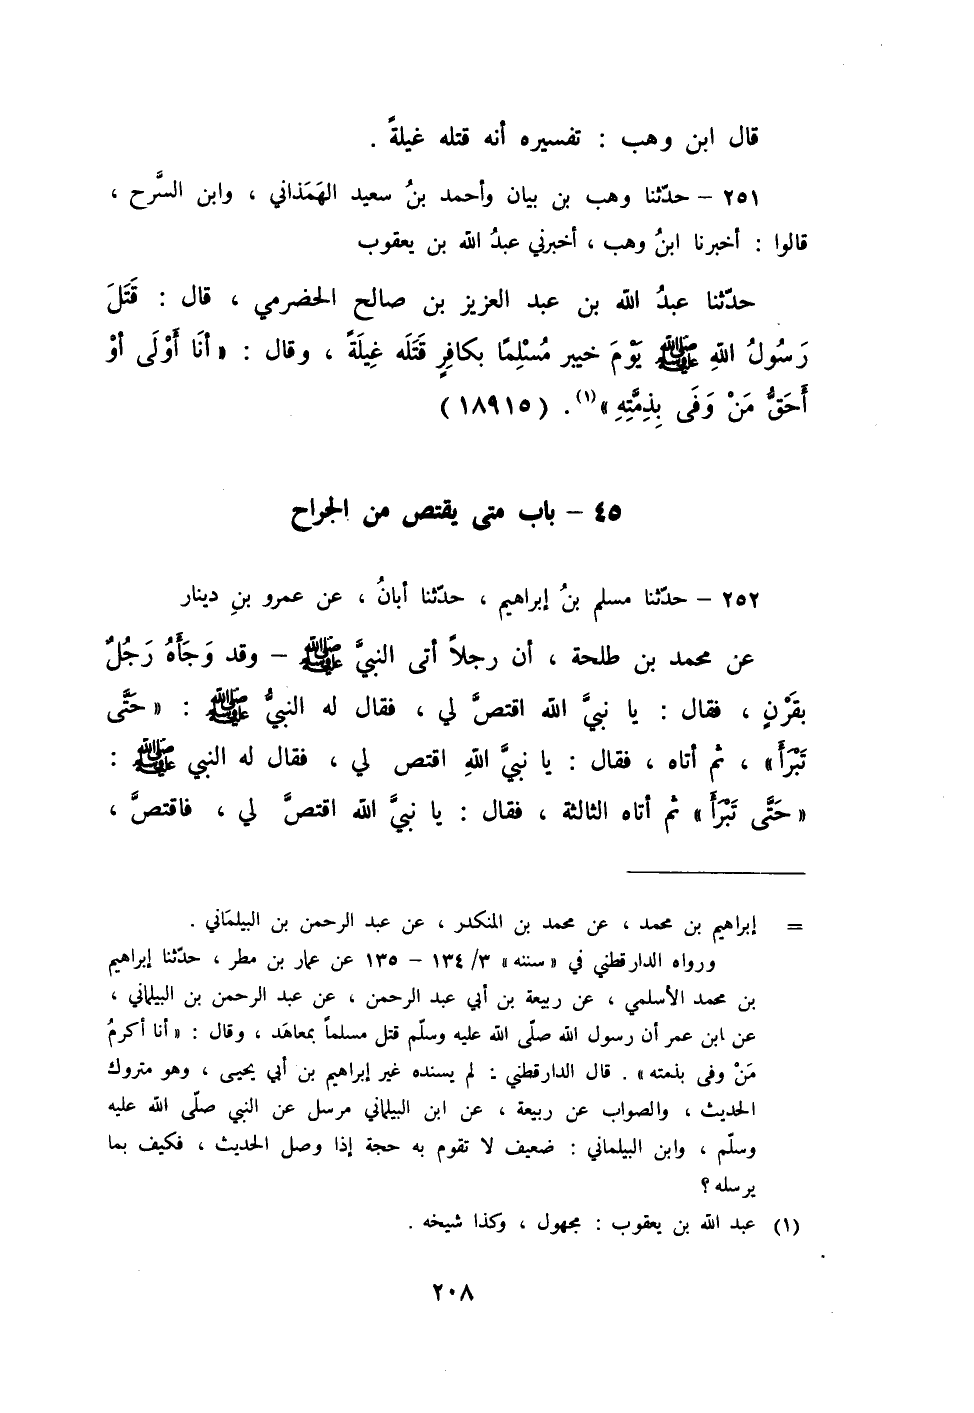 قال ابن وهب : تفسيره أنه قتله غيلةً .
٢٥١ - حدّثنا وهب بن بيان وأحمد بنُ سعيد الهَمَذاني ، وابن السَّرح ،
قالوا : أخبرنا ابنُ وهب ، أخبرني عبدُ الله بن يعقوب
حدّثنا عبدُ الله بن عبد العزيز بن صالح الحضرمي ، قال : قَتَلَ
رَسُولُ اللهِ ﷺ يَوْمَ خيبر مُسْلِمًا بكافرٍ قَتَلَه غِيلَةً ، وقال : « أنَا أَوْلَى أوْ
أَحَقُّ مَنْ وَفَى بِذِمَّتِهِ »(١) . (١٨٩١٥)
٤٥ - باب متى يقتص من الجراح
٢٥٢ - حدّثنا مسلم بنُ إبراهيم ، حدّثنا أبانُ ، عن عمرو بنِ دينار
عن محمد بن طلحة ، أن رجلاً أتى النبيَّ ﷺ - وقد وَجَأَهُ رَجُلٌ
بقَرْنٍ ، فقال : يا نبيَّ الله اقتصَّ لي ، فقال له النبيُّ ﷺ : « حَتَّى
تَبْرَأَ » ، ثم أتاه ، فقال : يا نبيَّ اللهِ اقتص لي ، فقال له النبي ﷺ :
« حَتَّى تَبْرَأَ » ثم أتاه الثالثة ، فقال : يا نبيَّ الله اقتصَّ لي ، فاقتصَّ ،
= إبراهيم بن محمد ، عن محمد بن المنكدر ، عن عبد الرحمن بن البيلمَاني .
ورواه الدارقطني في « سننه » ٣/ ١٣٤ - ١٣٥ عن عمار بن مطر ، حدّثنا إبراهيم
بن محمد الأسلمي ، عن ربيعة بن أبي عبد الرحمن ، عن عبد الرحمن بن البيلماني ،
عن ابن عمر أن رسول الله صلّى الله عليه وسلّم قتل مسلماً بمعاهَد ، وقال : « أنا أكرمُ
مَنْ وفى بذمته » . قال الدارقطني : لم يسنده غير إبراهيم بن أبي يحيى ، وهو متروك
الحديث ، والصواب عن ربيعة ، عن ابن البيلماني مرسل عن النبي صلّى الله عليه
وسلّم ، وابن البيلماني : ضعيف لا تقوم به حجة إذا وصل الحديث ، فكيف بما
يرسله ؟
(١) عبد الله بن يعقوب : مجهول ، وكذا شيخه .
٢٠٨